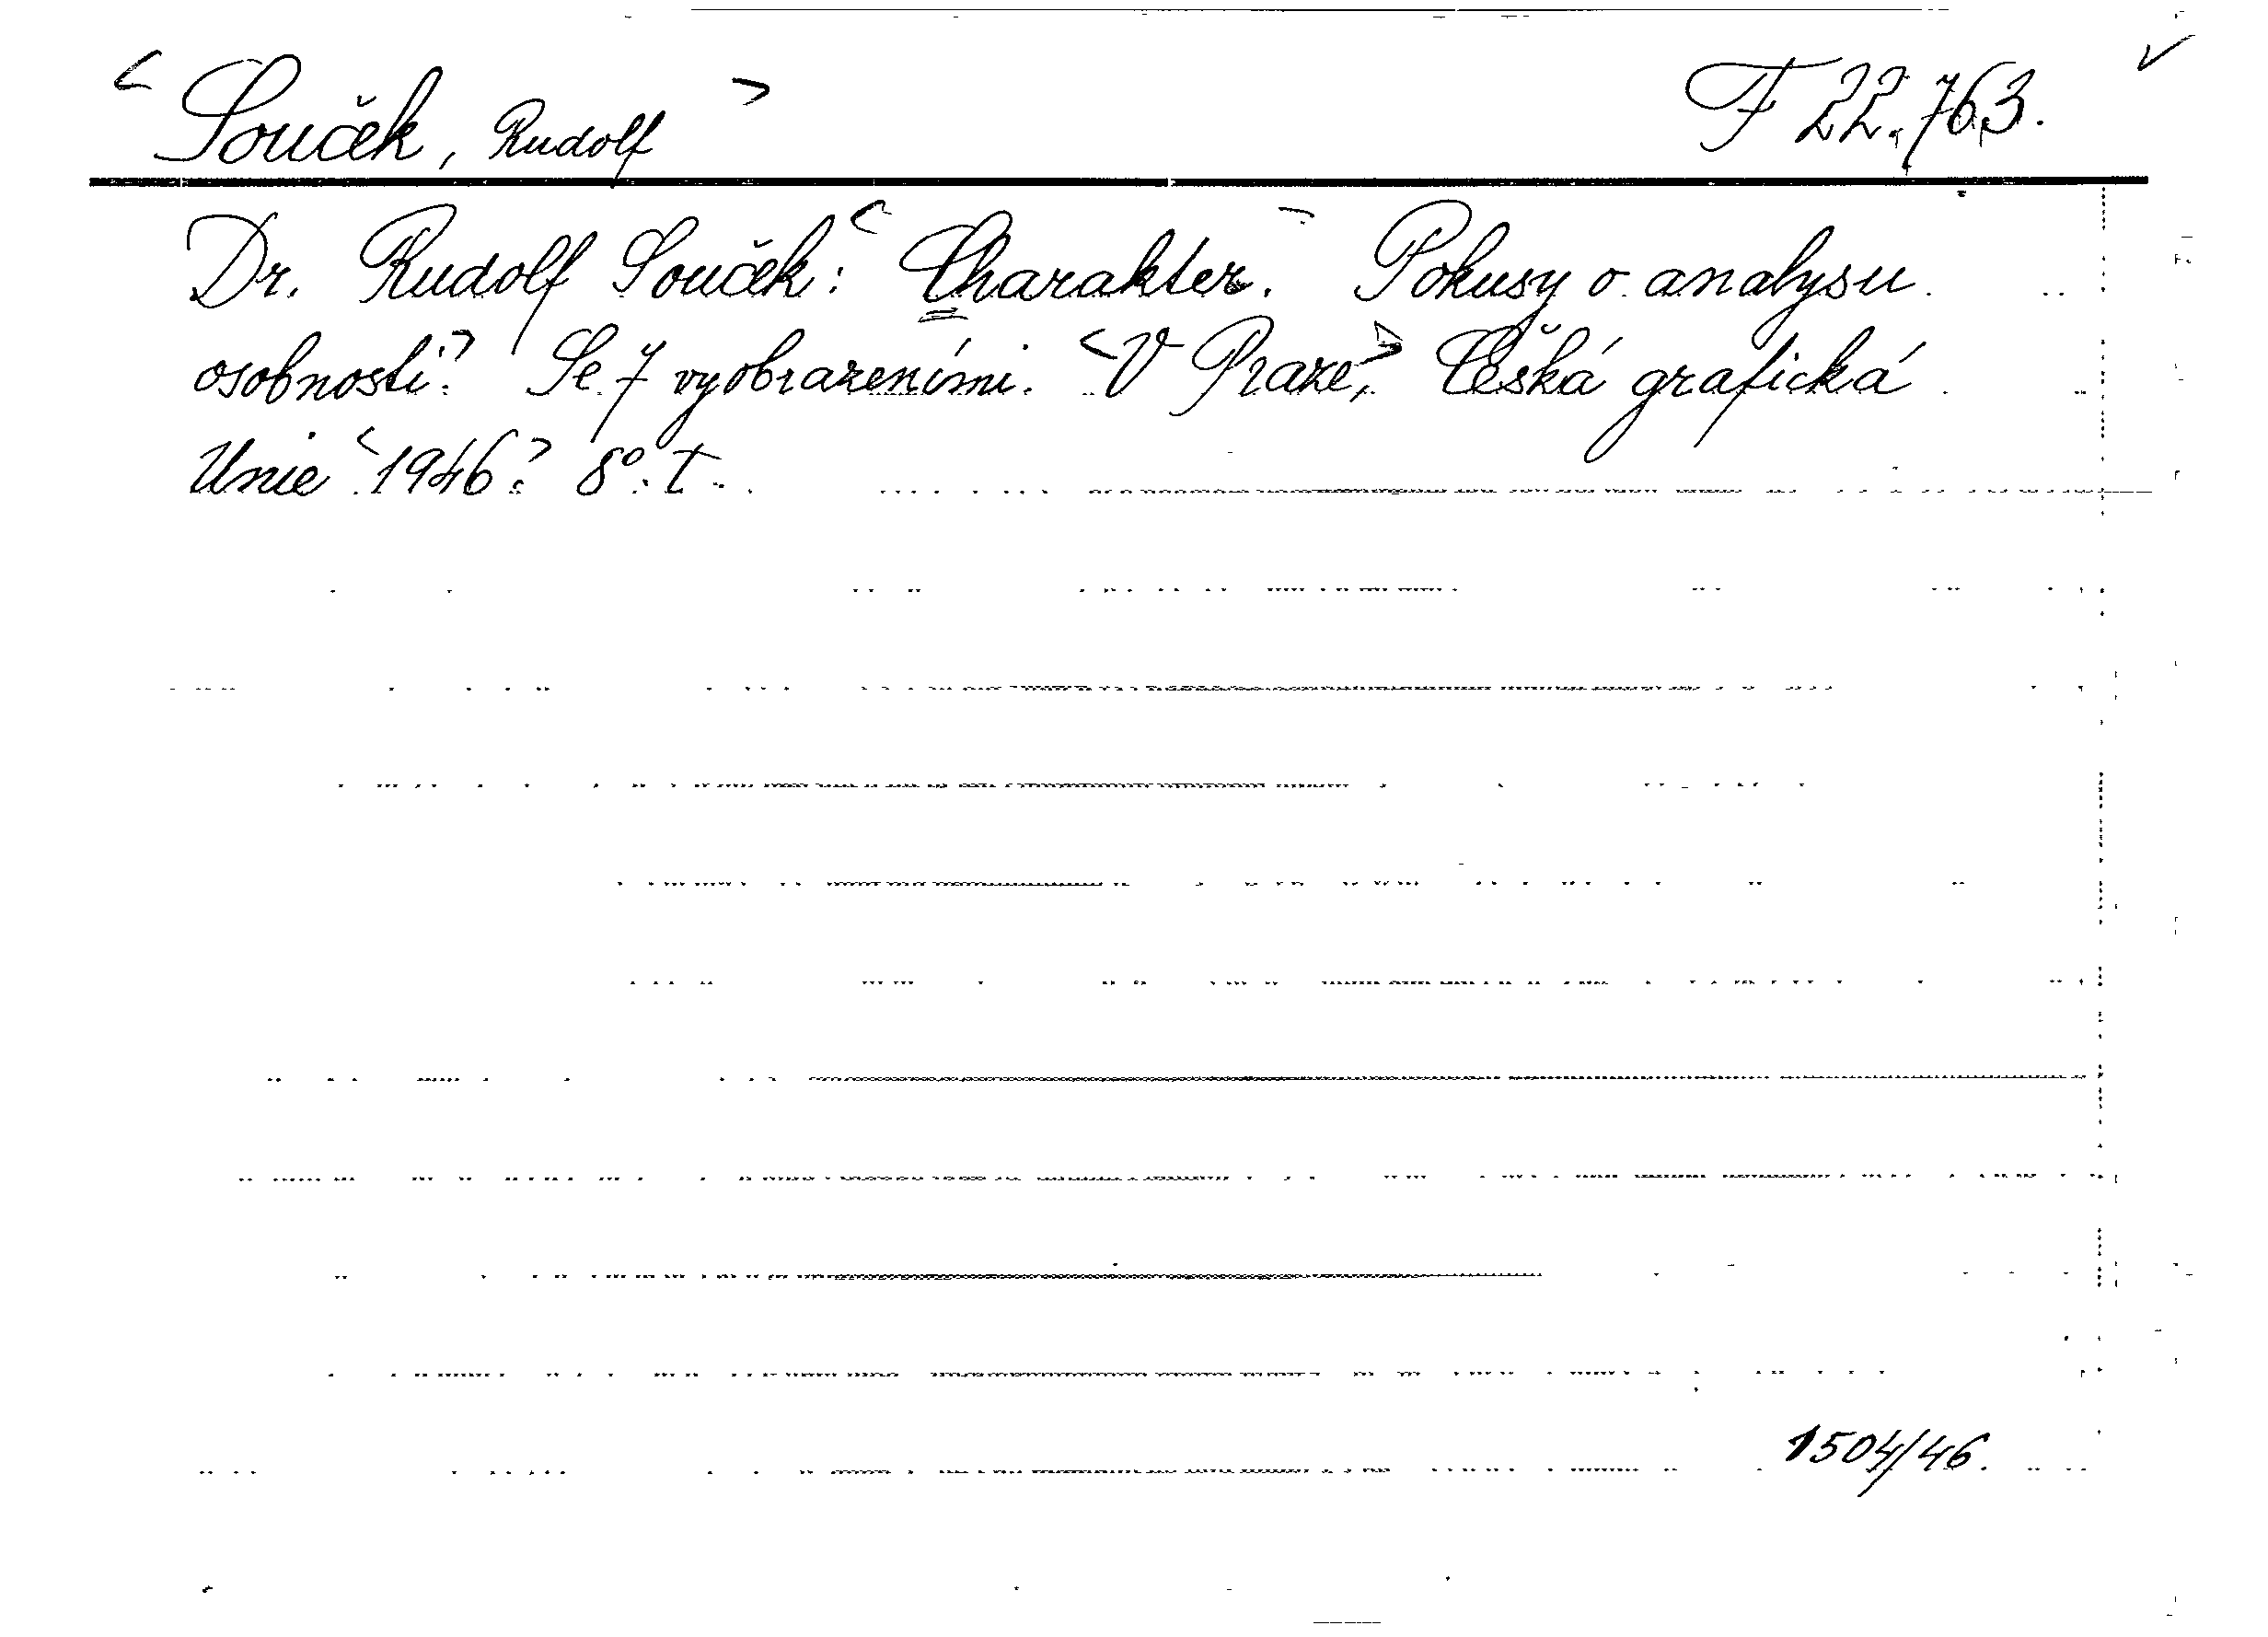 < Souček, Rudolf > F 22.763. ✓
Dr. Rudolf Souček: <Charakter. Pokusy o analysu
osobnosti.> Se 7 vyobrazeními. <V Praze,> Česká grafická
Unie <1946.> 8°. T.
1504/46.